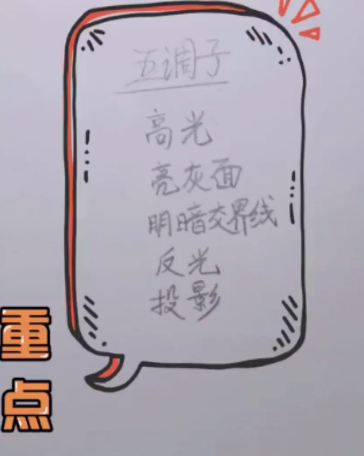 五调子
高光
亮灰面
明暗交界线
反光
投影
重点